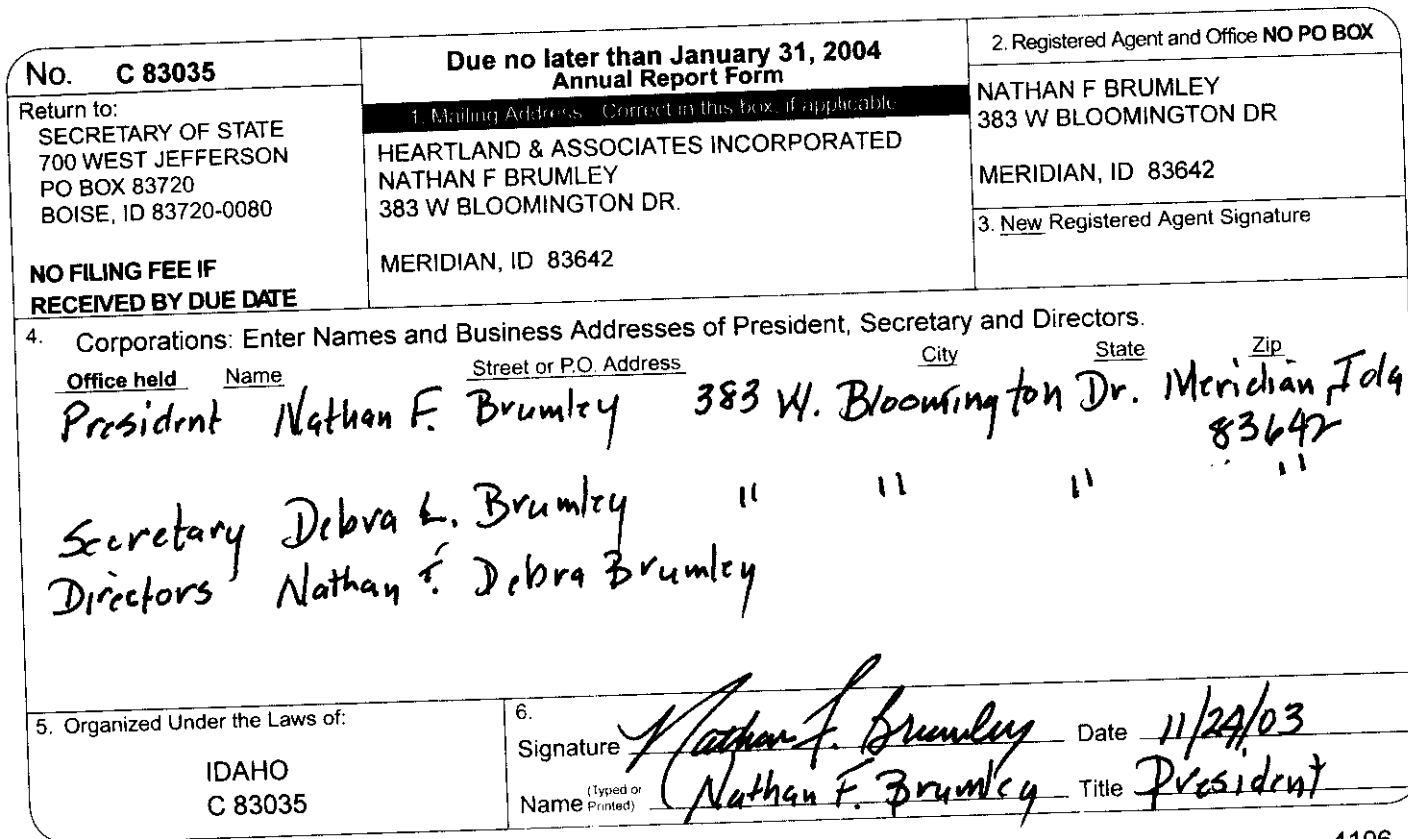 No. C 83035
Return to:
SECRETARY OF STATE
700 WEST JEFFERSON
PO BOX 83720
BOISE, ID 83720-0080
NO FILING FEE IF
RECEIVED BY DUE DATE
Due no later than January 31, 2004
Annual Report Form
1. Mailing Address Correct in this box, if applicable
HEARTLAND & ASSOCIATES INCORPORATED
NATHAN F BRUMLEY
383 W BLOOMINGTON DR.
MERIDIAN, ID 83642
2. Registered Agent and Office NO PO BOX
NATHAN F BRUMLEY
383 W BLOOMINGTON DR
MERIDIAN, ID 83642
3. New Registered Agent Signature
4. Corporations: Enter Names and Business Addresses of President, Secretary and Directors.
Office held Name Street or P.O. Address City State Zip
President Nathan F. Brumley 383 W. Bloomington Dr. Meridian, Ida
83642
Secretary Debra L. Brumley " " " "
Directors Nathan & Debra Brumley
5. Organized Under the Laws of:
IDAHO
C 83035
6.
Signature Nathan F. Brumley Date 11/24/03
Name (Typed or Printed) Nathan F. Brumley Title President